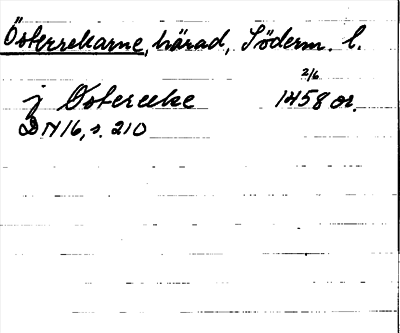 Österrekarne, härad, Söderm. l.
2/6
j Østereke 1458 or.
DN 16, s. 210